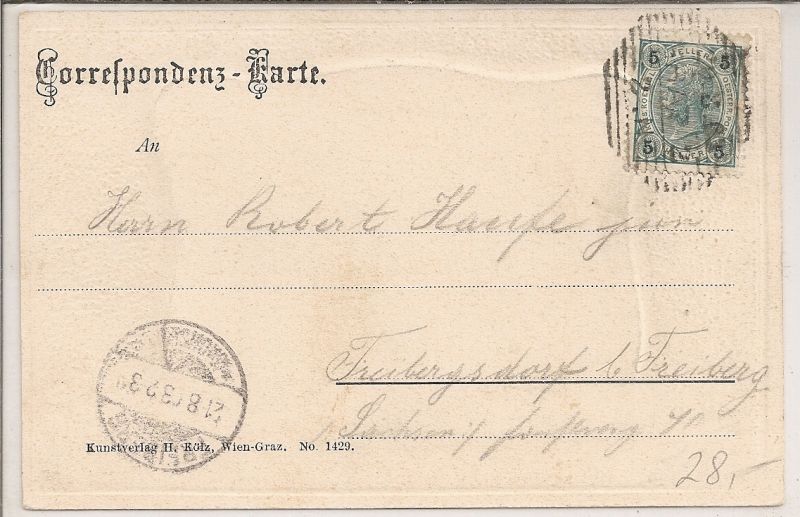 Correspondenz-Karte.
5 5
5 5
An
Herrn Robert Haufe jun
Freibergsdorf b. Freiberg
Sachsen
21.8.03
Kunstverlag H. Kölz, Wien-Graz. No. 1429.
28,-